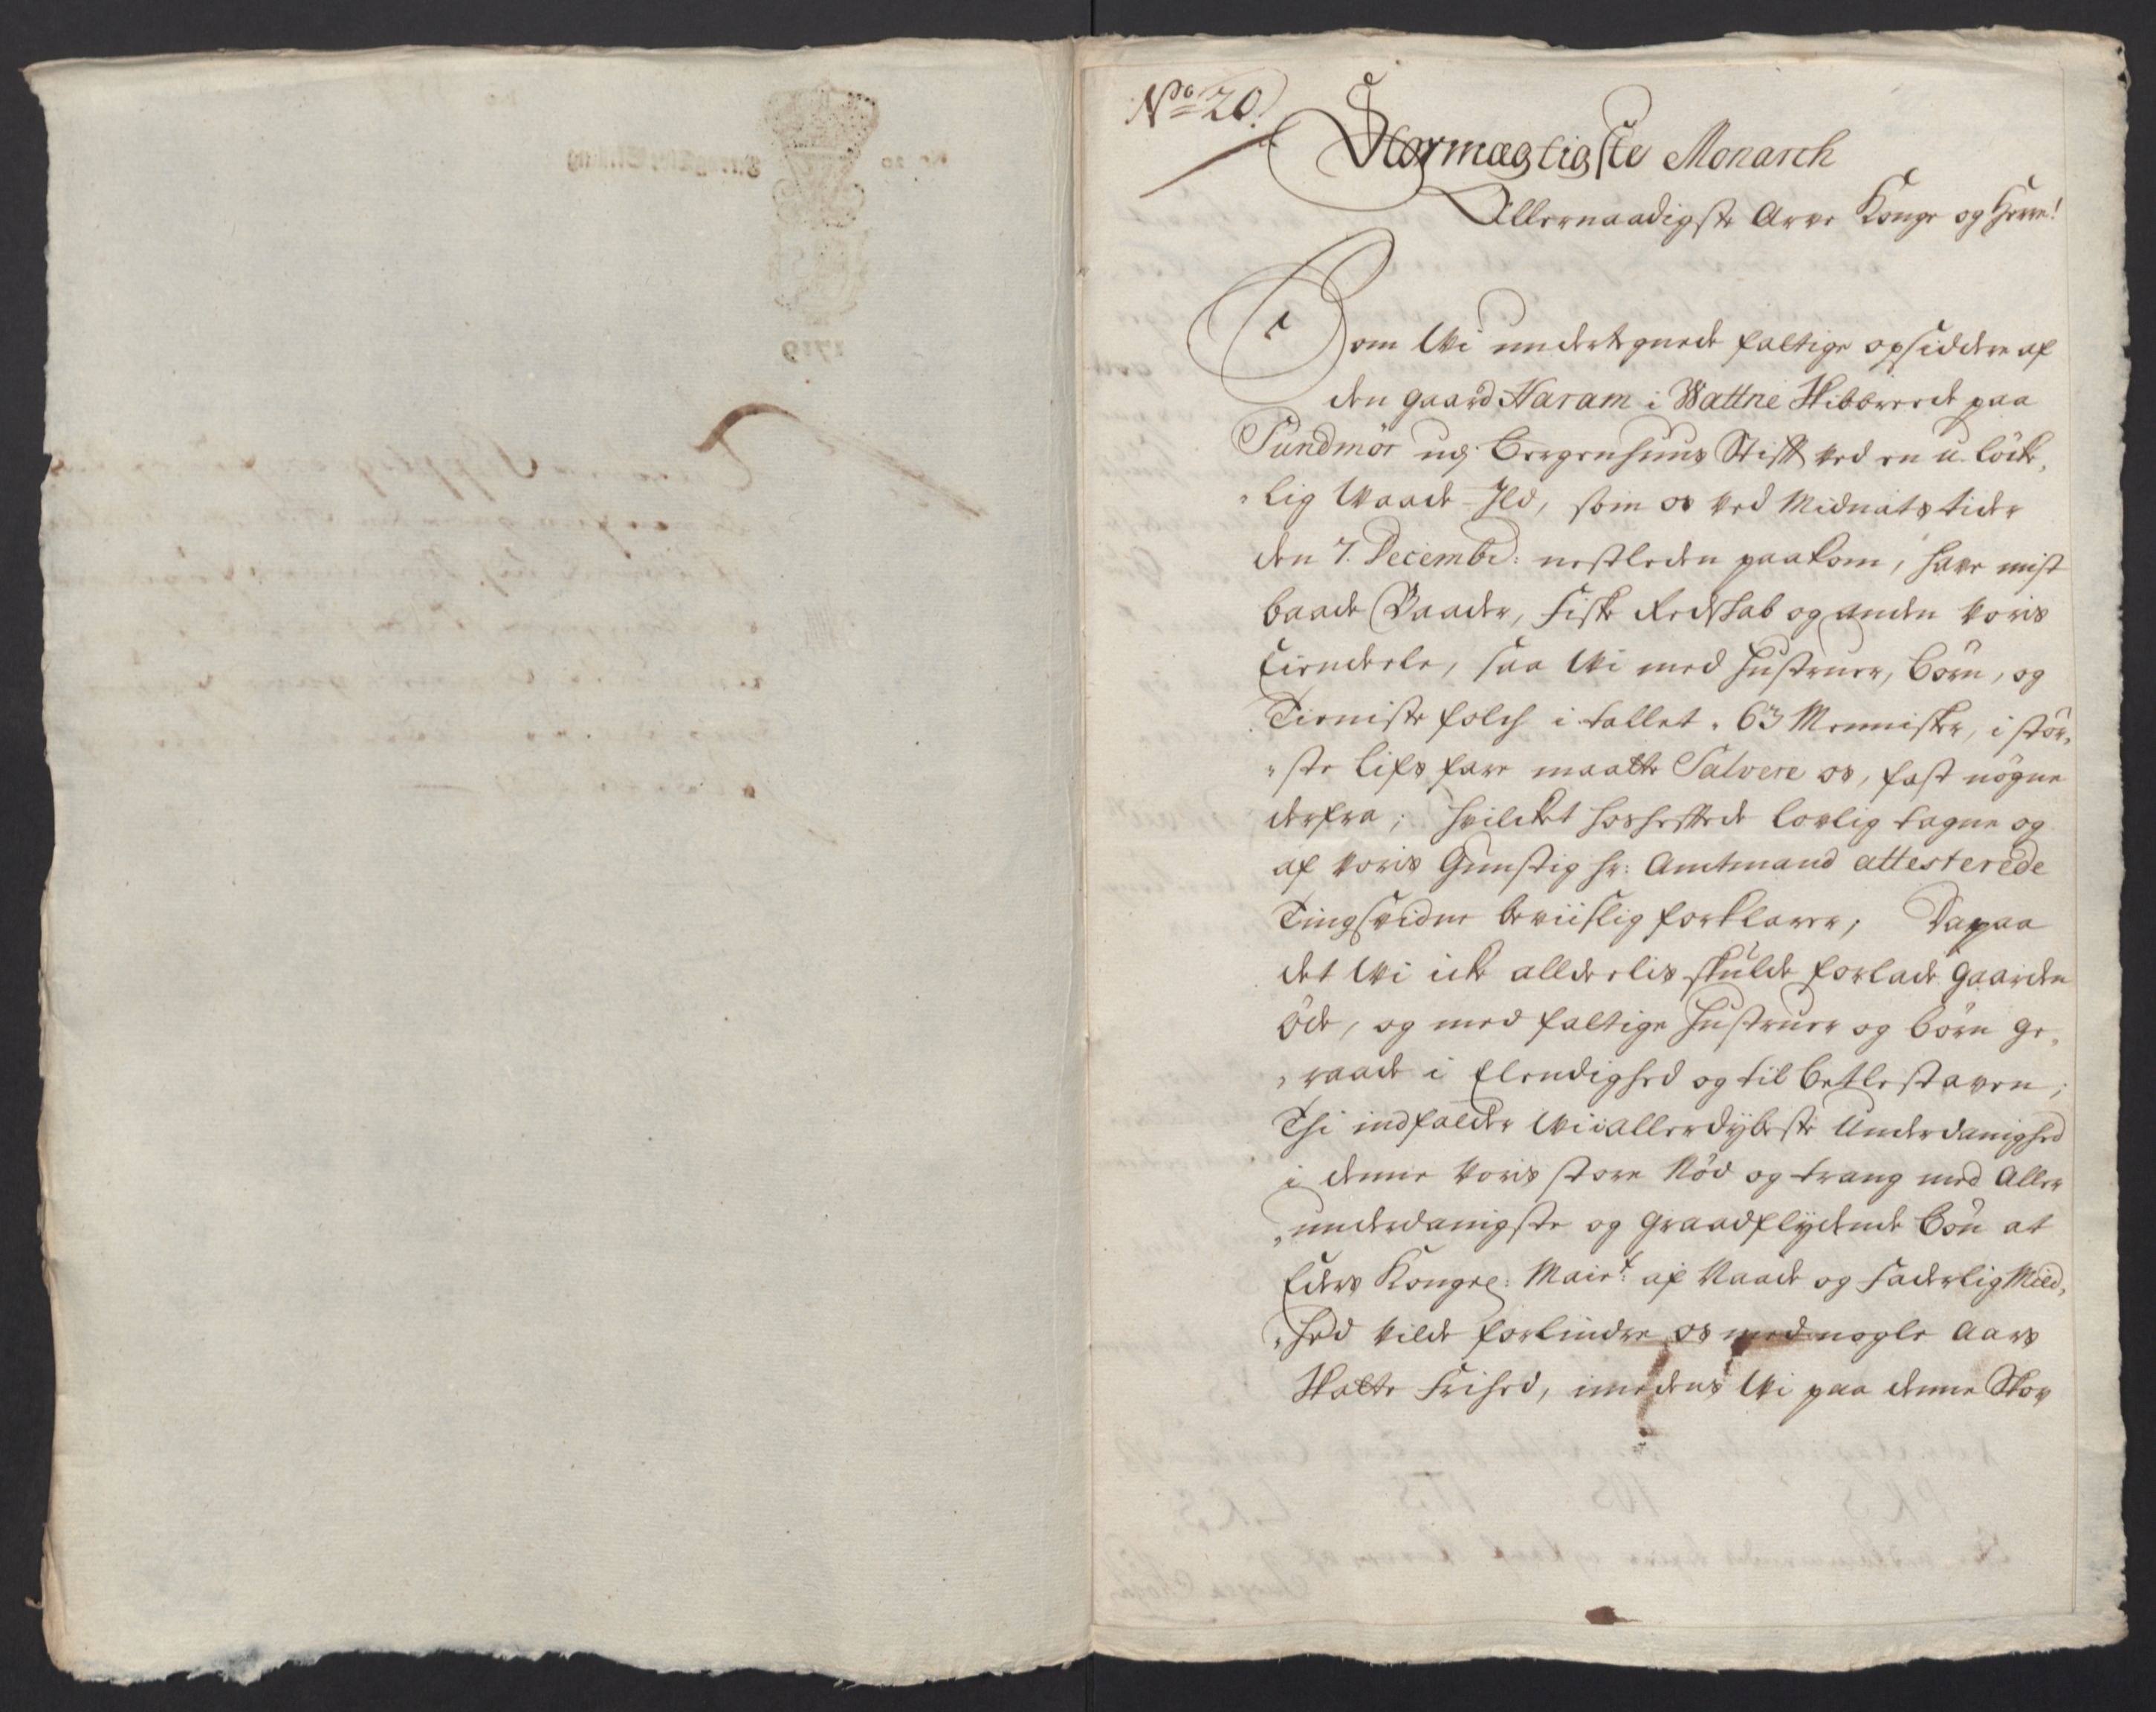 No 20.
Stormægtigste Monarch
Allernaadigste Arve Konge og Herre!
Som Wi undertegnede fattige opsiddere af
den gaard Haram i Wattne Skibbrede paa
Sundmør udj Bergenhuus Stift ved en u-løcke,
"lig Waade-Ild, som os ved Midnats tider
den 7. Decembr: nestleden paakom, have mist
baade Vaader, Fiske Redskab og anden voris
Eiendeele, saa Wi med Hustruer, børn, og
Tieniste folch i tallet. 63 Mennisker, i stør,
"ste Lifs fare maatte Salvere os, fast nøgne
derfra; hvilcket hoshefftede lovlig tagne og
af voris Gunstig hr: Amtmand attesterede
Tingsvidne beviislig forklarer; Da paa
det Wi icke alldelis skulde forlade gaarden
øde, og med fattige Hustruer og børn ge,
"raade i Elendighed og til betlestaven;
Thi indfalder Wi i allerdybeste Underdanighed
i denne voris store Nød og trang med Aller
"underdanigste og graadflydende bøn at
Eders Kongel: Maiet: af Naade og Faderlig Mild,
"hed vilde forlindre os med nogle Aars
Skatte Frihed, imedens Wi paa denne Skov
1719